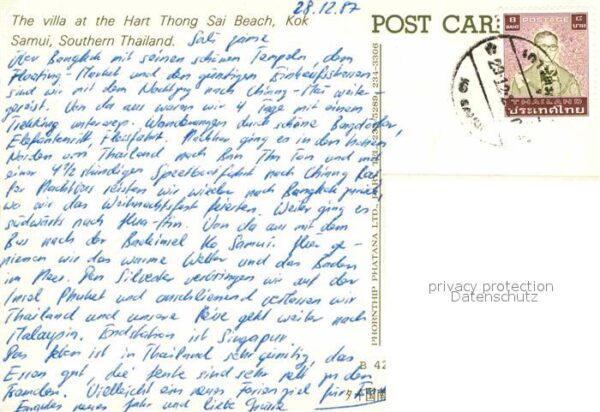 28.12.87
The villa at the Hart Thong Sai Beach, Kok
Samui, Southern Thailand.
POST CAR
Sali zäme
Über Bangkok mit seinen schönen Tempeln, dem
Floating-Market und den günstigen Einkaufsstrassen
sind wir mit dem Nachtzug nach Chiang-Mai weiter-
gereist. Von da aus waren wir 4 Tage mit einem
Trekking unterwegs. Wanderungen durch schöne Bergdörfer,
Elefantenritt, Flossfahrt. Nachher ging es in den hohen
Norden von Thailand nach Ban Tha Ton und mit
einer 4½ stündigen Speedboatfahrt nach Chiang Rai.
Per Nachtbus reisten wir wieder nach Bangkok zurück,
wo wir das Weihnachtsfest feierten. Weiter ging es
südwärts nach Hua-Hin. Von da aus mit dem
Bus nach der Badeinsel Ko Samui. Hier ge-
niessen wir das warme Wetter und das Baden
im Meer. Den Silvester verbringen wir auf der
Insel Phuket und anschliessend verlassen wir
Thailand und unsere Reise geht weiter nach
Malaysia. Endstation ist Singapur.
Das Leben ist in Thailand sehr günstig, das
Essen gut, die Leute sind sehr nett zu den
Fremden. Vielleicht ein neues Ferienziel für
neues Jahr und liebe Grüsse
PHORNTHIP PHATANA LTD., PART. TEL. 233-5280, 234-3306
B 42
8 BAHT
POSTAGE
๘ บาท
THAILAND
ประเทศไทย
privacy protection
Datenschutz